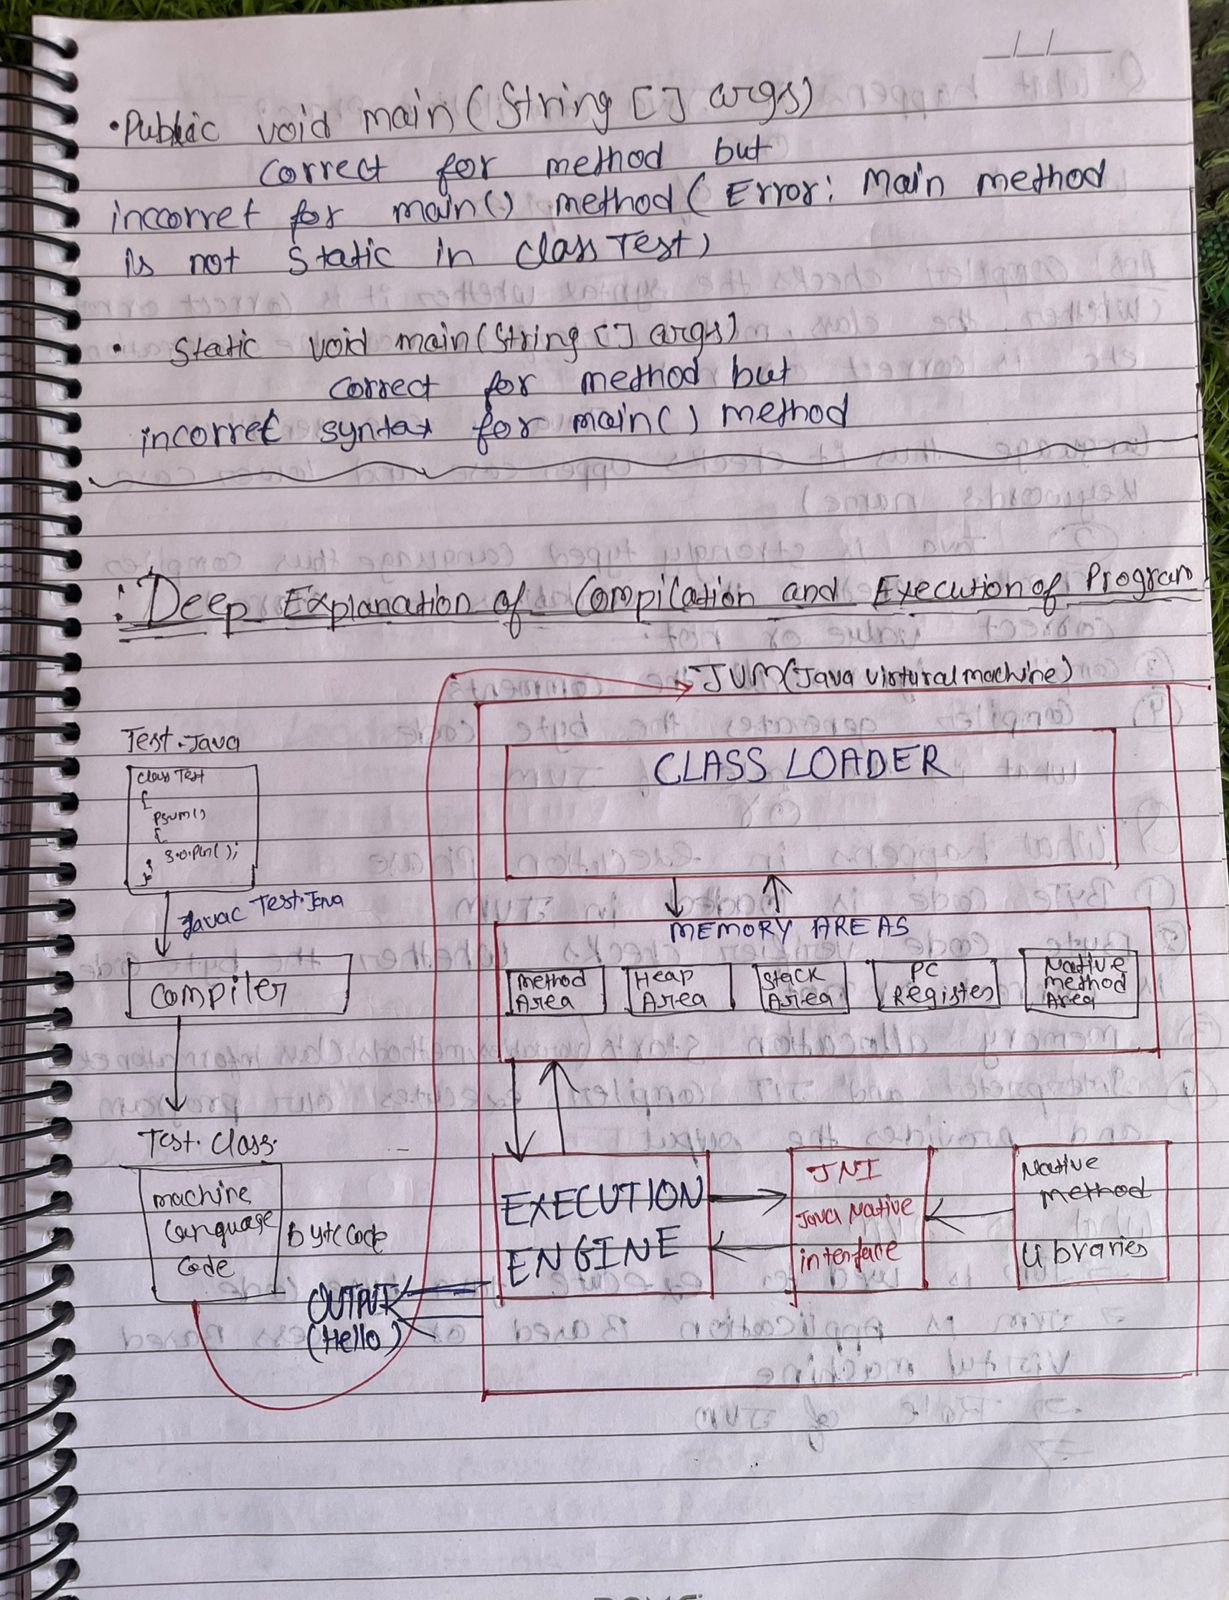 •Public void main(String [] args)
correct for method but
incorret for main() method(Error: Main method
is not static in class Test)
• Static void main(String [] args)
correct for method but
incorret syntax for main() method
:Deep Explanation of Compilation and Execution of Program
JVM(Java virtural machine)
Test.Java
class Test
{
psvm()
{
s.o.pln();
}
}
Javac Test.Java
Compiler
Test.Class
machine
language
code
Byte code
OUTPUT
(Hello)
CLASS LOADER
MEMORY AREAS
Method
Area
Heap
Area
Stack
Area
PC
Register
Native
method
Area
EXECUTION
ENGINE
JNI
Java Native
interface
Native
method
libraries